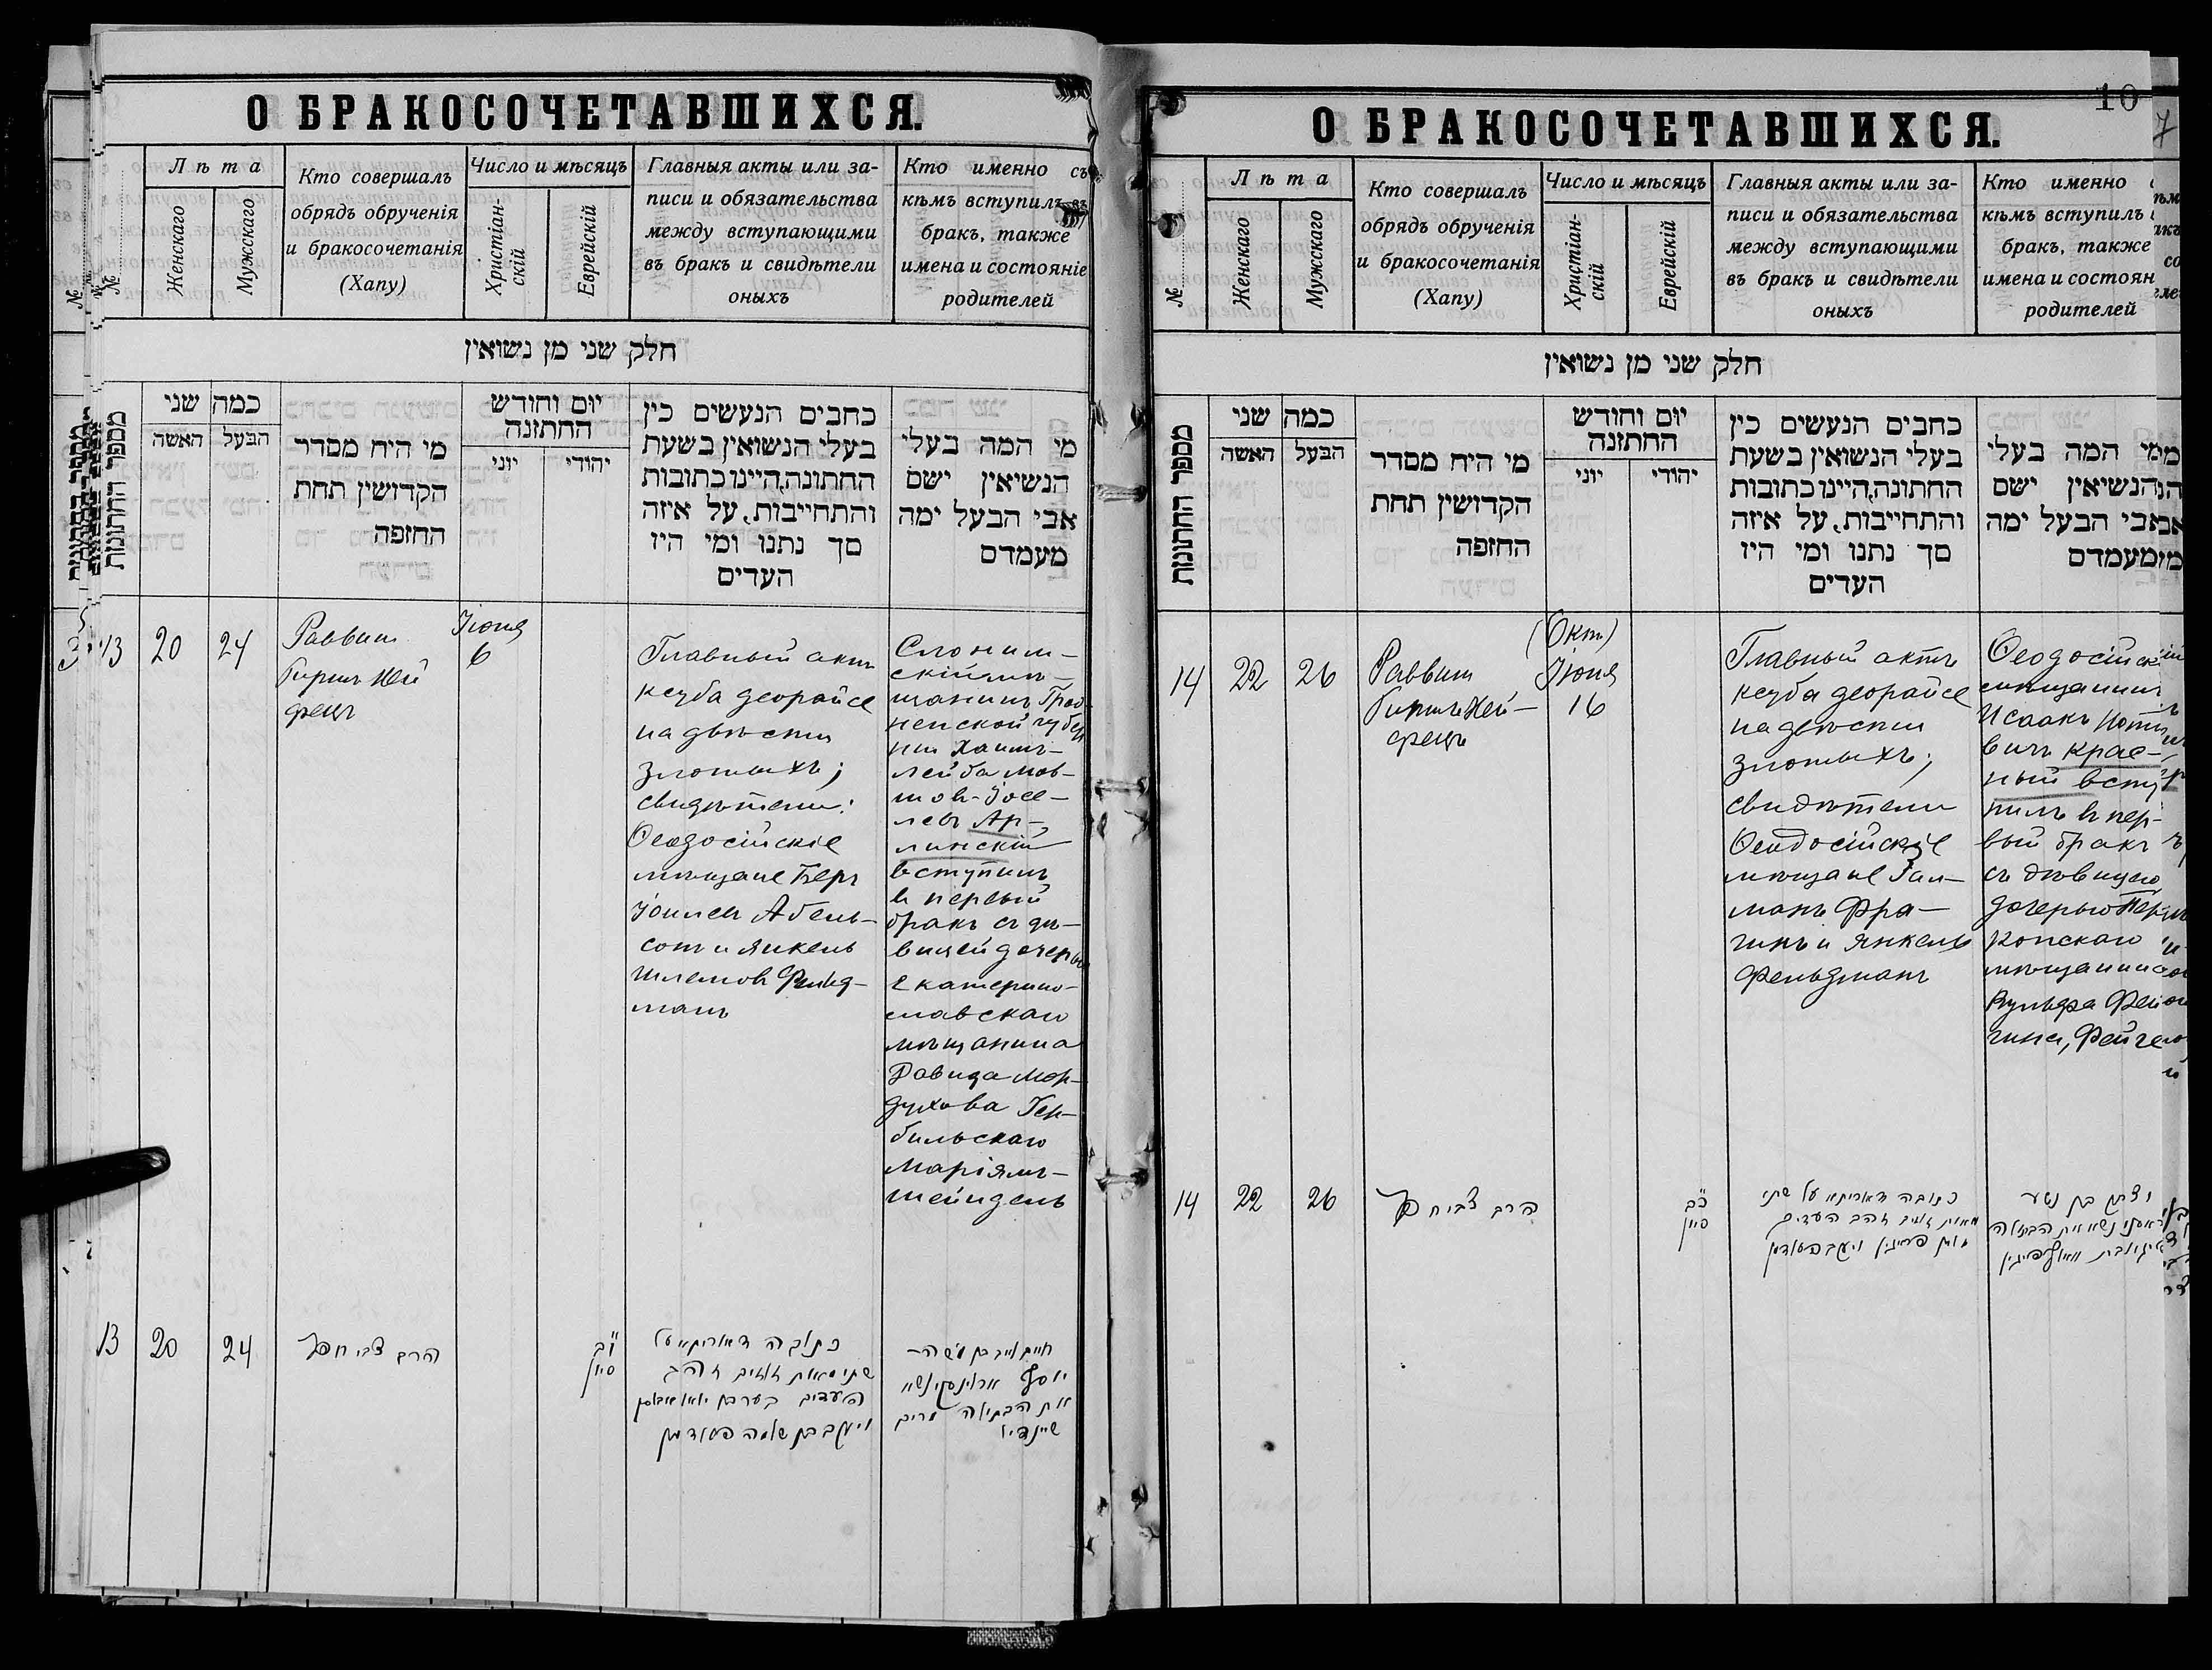 О БРАКОСОЧЕТАВШИХСЯ.
№
Лѣта
Женскаго
Мужскаго
Кто совершалъ
обрядъ обрученія
и бракосочетанія
(Хапу)
Число и мѣсяцъ
Христіан-
скій
Еврейскій
Главныя акты или за-
писи и обязательства
между вступающими
въ бракъ и свидѣтели
оныхъ
Кто именно съ
кѣмъ вступилъ въ
бракъ, также
имена и состояніе
родителей
חלק שני מן נשואין
מספר החתונות
כמה שני
האשה
הבעל
מי היח מסדר
הקדושין תחת
החזפה
יום וחודש
החתזנה
יוני
יהודי
כחבים הנעשים כין
בעלי הנשואין בשעת
החתונה,היינו כתובות
והתחייבות, על איזה
סך נתנו ומי היז
העדים
מי המה בעלי
הנשיאין ישם
אבי הבעל ימה
מעמדם
13
20
24
Раввин
Гиршъ Хей
фецъ
Іюня
6
Главный актъ
ксуба деорайсе
на двѣсти
злотыхъ;
свидѣтели:
Ѳеодосійскіе
мѣщане Беръ
Іоилевъ Абель-
сон и Янкель
Шлемов Фельд-
манъ
Слоним-
скій мѣ-
щанинъ Грод-
ненской губер
ніи Хаимъ-
Лейба Мов-
шов-Іосе-
левъ Ар-
линскій
вступилъ
в первый
бракъ съ дѣ-
вицей дочерью
Екатерино-
славскаго
мѣщанина
Давида Мор-
духова Гер-
бильскаго
Маріямъ-
Шейндель
13
20
24
הרב צבי חפץ
י"ב
סיון
כתובה דאוריתא על
שתי מאות זוזים זהב
העדים
ויעקב בן שלמה פעלדמן
חיים לייב בן משה-
יוסף ארלינסקי נשא
את הבתולה מרים
שיינדיל
10
7
О БРАКОСОЧЕТАВШИХСЯ.
№
Лѣта
Женскаго
Мужскаго
Кто совершалъ
обрядъ обрученія
и бракосочетанія
(Хапу)
Число и мѣсяцъ
Христіан-
скій
Еврейскій
Главныя акты или за-
писи и обязательства
между вступающими
въ бракъ и свидѣтели
оныхъ
Кто именно
кѣмъ вступилъ
бракъ, также
имена и состоян
родителей
חלק שני מן נשואין
מספר החתונות
כמה שני
האשה
הבעל
מי היח מסדר
הקדושין תחת
החזפה
יום וחודש
החתזנה
יוני
יהודי
כחבים הנעשים כין
בעלי הנשואין בשעת
החתונה,היינו כתובות
והתחייבות, על איזה
סך נתנו ומי היז
העדים
מי המה בעלי
הנשיאין ישם
אבי הבעל ימה
מעמדם
14
22
26
Раввин
Гиршъ Хей-
фецъ
(Окт)
Іюня
16
Главный актъ
ксуба деорайсе
на двѣсти
злотыхъ;
свидѣтели
Ѳеодосійскіе
мѣщане Зал-
манъ Фра-
гинъ и Янкель
Фельдманъ
Ѳеодосійск
мѣщанинъ
Исаакъ
вичъ Крас-
ный всту
пилъ в пер-
вый бракъ
съ дѣвицею
дочерью Пере
копскаго
мѣщанина
Вульфа Фей
гина, Фейгел
14
22
26
הרב צבי חפץ
כ"ב
סיון
כתובה דאוריתא על שתי
מאות זוזים זהב העדים
ויעקב פעלדמן
יצחק בן נטע
קראסני נשא את הבתולה